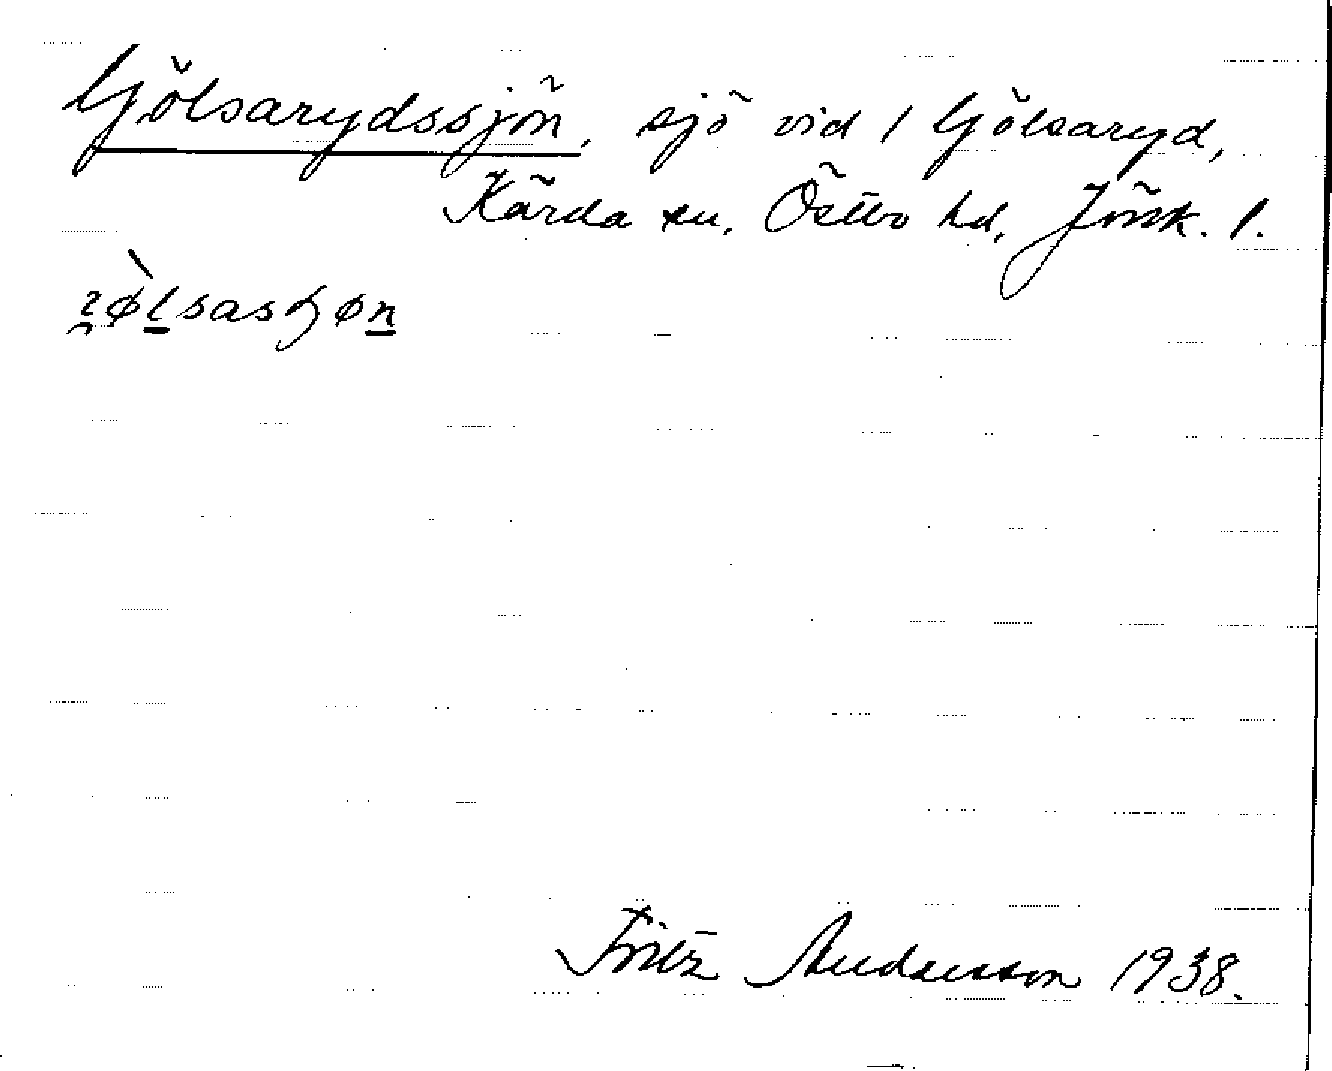 Gjölsarydssjön, sjö vid / Gjölsaryd,
Kärda sn. Östbo hd, Jönk. l.
Fritz Andersson 1938.